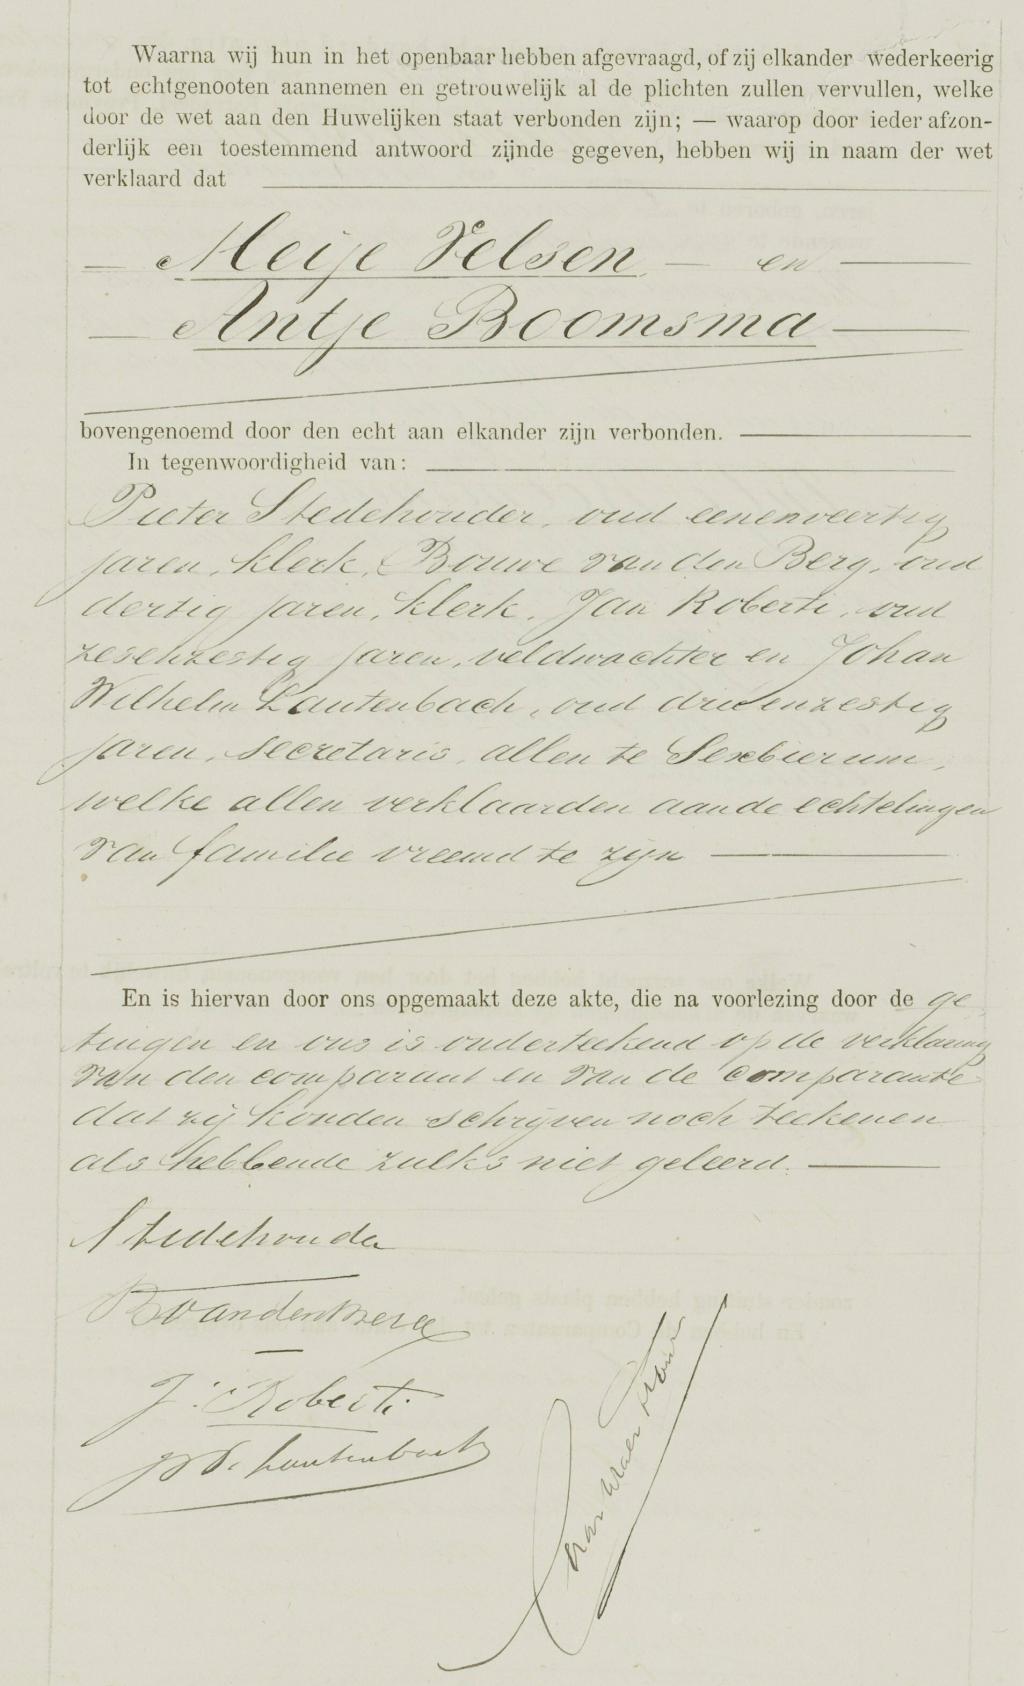 Waarna wij hun in het openbaar hebben afgevraagd, of zij elkander wederkeerig
tot echtgenooten aannemen en getrouwelijk al de plichten zullen vervullen, welke
door de wet aan den Huwelijken staat verbonden zijn; — waarop door ieder afzon-
derlijk een toestemmend antwoord zijnde gegeven, hebben wij in naam der wet
verklaard dat
— Meije Velsen — en —
— Antje Boomsma —
bovengenoemd door den echt aan elkander zijn verbonden.
In tegenwoordigheid van:
Pieter Stedehouder, oud eenenveertig
jaren, klerk, Bouwe van den Berg, oud
dertig jaren, klerk, Jan Roberti, oud
zesenzestig jaren, veldwachter en Johan
Wilhelm Lautenbach, oud drieenzestig
jaren, secretaris, allen te Sexbierum,
welke allen verklaarden aan de echtelingen
van familie vreemd te zijn —
En is hiervan door ons opgemaakt deze akte, die na voorlezing door de ge
tuigen en ons is onderteekend op de verklaring
van den comparant en van de comparante
dat zij konden schrijven noch teekenen
als hebbende zulks niet geleerd. —
Stedehouder
B vandenBerg
J. Roberti
JW. Lautenbach